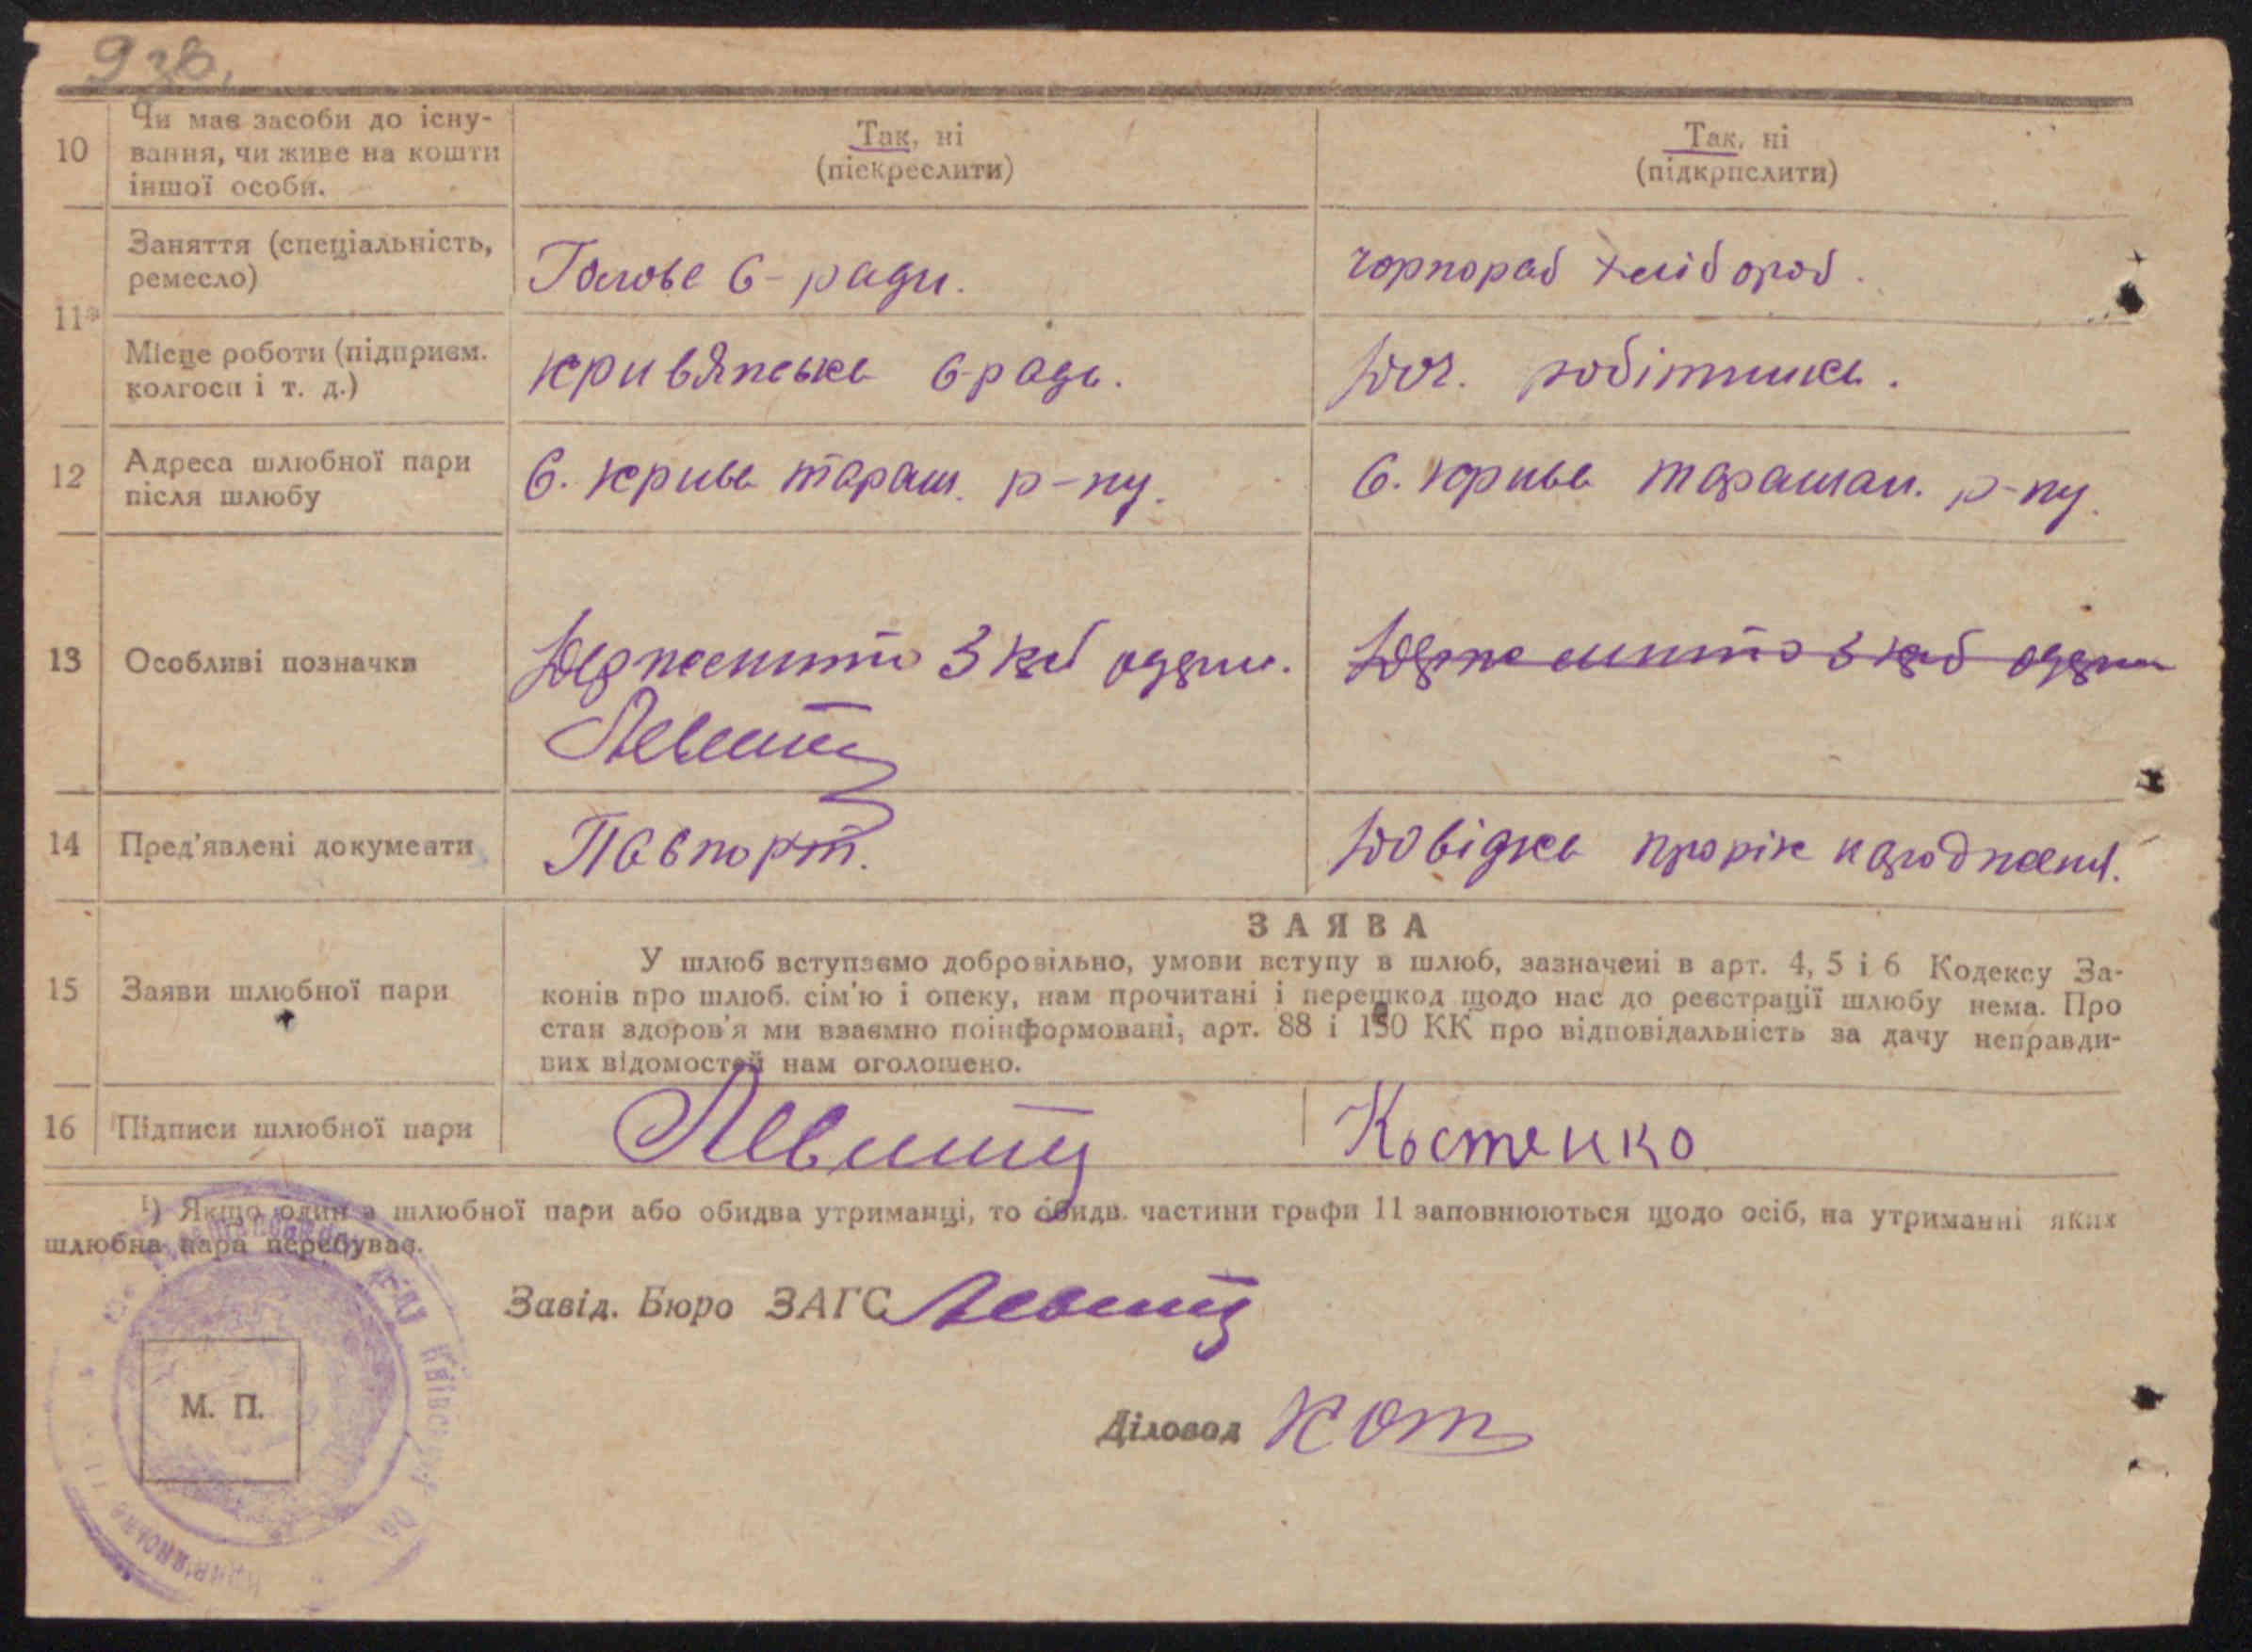 9 зв.
10
Чи має засоби до існу-
вання, чи живе на кошти
іншої особи.
Так, ні
(піекреслити)
Так, ні
(підкрпслити)
11
Заняття (спеціальність,
ремесло)
Голова С-ради.
чорнороб хлібороб.
Місце роботи (підприєм.
колгосп і т. д.)
крив'янська С-рада.
робітника.
12
Адреса шлюбної пари
після шлюбу
С. крива тараш. р-ну.
С. крива таращан. р-ну.
13
Особливі позначки
Держмито 3 карб одерж.
Держмито 3 карб одерж
14
Пред'явлені документи
Паспорт.
Довідка про рік народження.
ЗАЯВА
15
Заяви шлюбної пари
У шлюб вступаємо добровільно, умови вступу в шлюб, зазначені в арт. 4, 5 і 6 Кодексу За-
конів про шлюб. сім'ю і опеку, нам прочитані і перешкод щодо нас до реєстрації шлюбу нема. Про
стан здоров'я ми взаємно поінформовані, арт. 88 і КК про відповідальність за дачу неправди-
вих відомостей нам оголошено.
16
Підписи шлюбної пари
Костенко
¹) Якщо один з шлюбної пари або обидва утриманці, то обидв. частини графи 11 заповнюються щодо осіб, на утриманні яких
шлюбна пара перебуває.
Завід. Бюро ЗАГС
М. П.
Діловод Кот